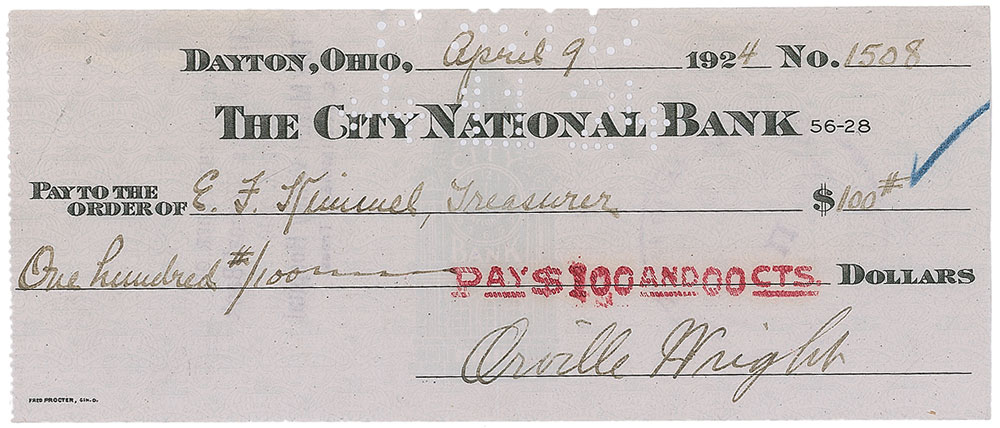 DAYTON, OHIO, April 9 1924 No. 1508
THE CITY NATIONAL BANK 56-28
PAY TO THE ORDER OF E. F. Kimmel, Treasurer $100 #
One hundred #/100 PAY $100 AND 00 CTS. DOLLARS
Orville Wright
FRED PROCTER, CIN. O.